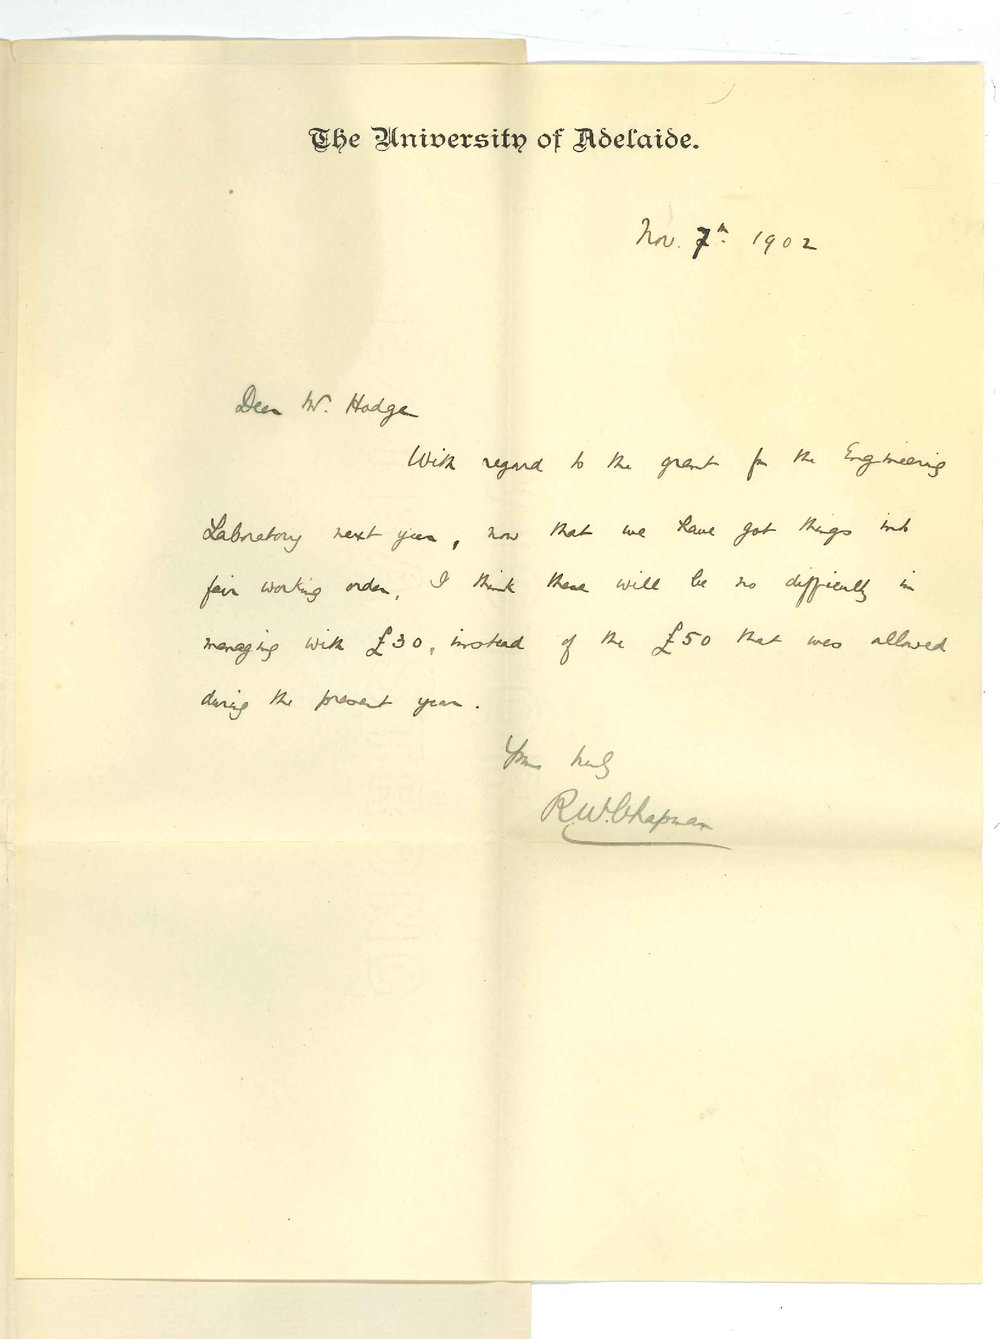 The University of Adelaide.
Nov. 7th. 1902
Dear Mr. Hodge
With regard to the grant for the Engineering
Laboratory next year, now that we have got things into
fair working order, I think there will be no difficulty in
managing with £30, instead of the £50 that was allowed
during the present year.
Yours truly
R.W. Chapman